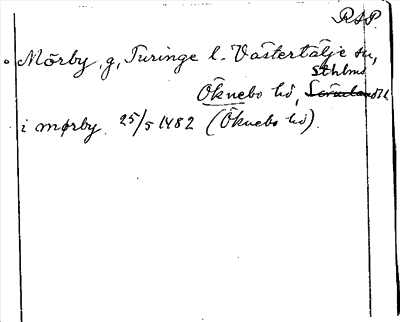 RAP
Mörby, g, Turinge l. Västertälje sn,
Sthlms
Öknebo hd, l.
i mørby 25/5 1482 (Öknebo hd).